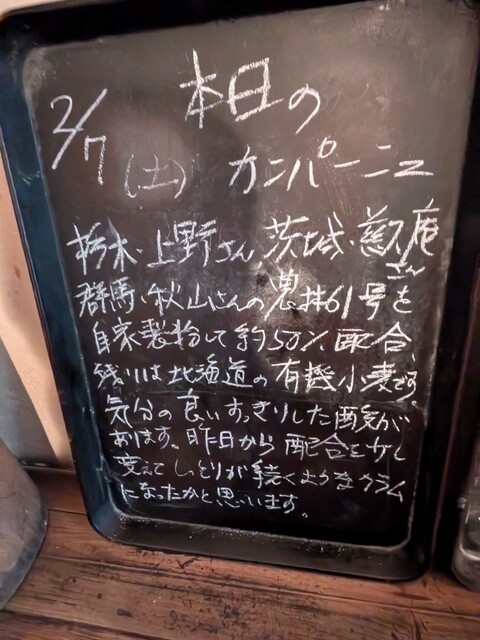 本日の
2/7(土) カンパーニュ
栃木・上野さん、茨城・慈久庵さん
群馬・秋山さんの農林61号を
自家製粉して約50%配合、
残りは北海道の有機小麦です。
気分の良いすっきりした酸気が
あります。昨日から配合を少し
変えてしっとりが続くようなクラム
になったかと思います。